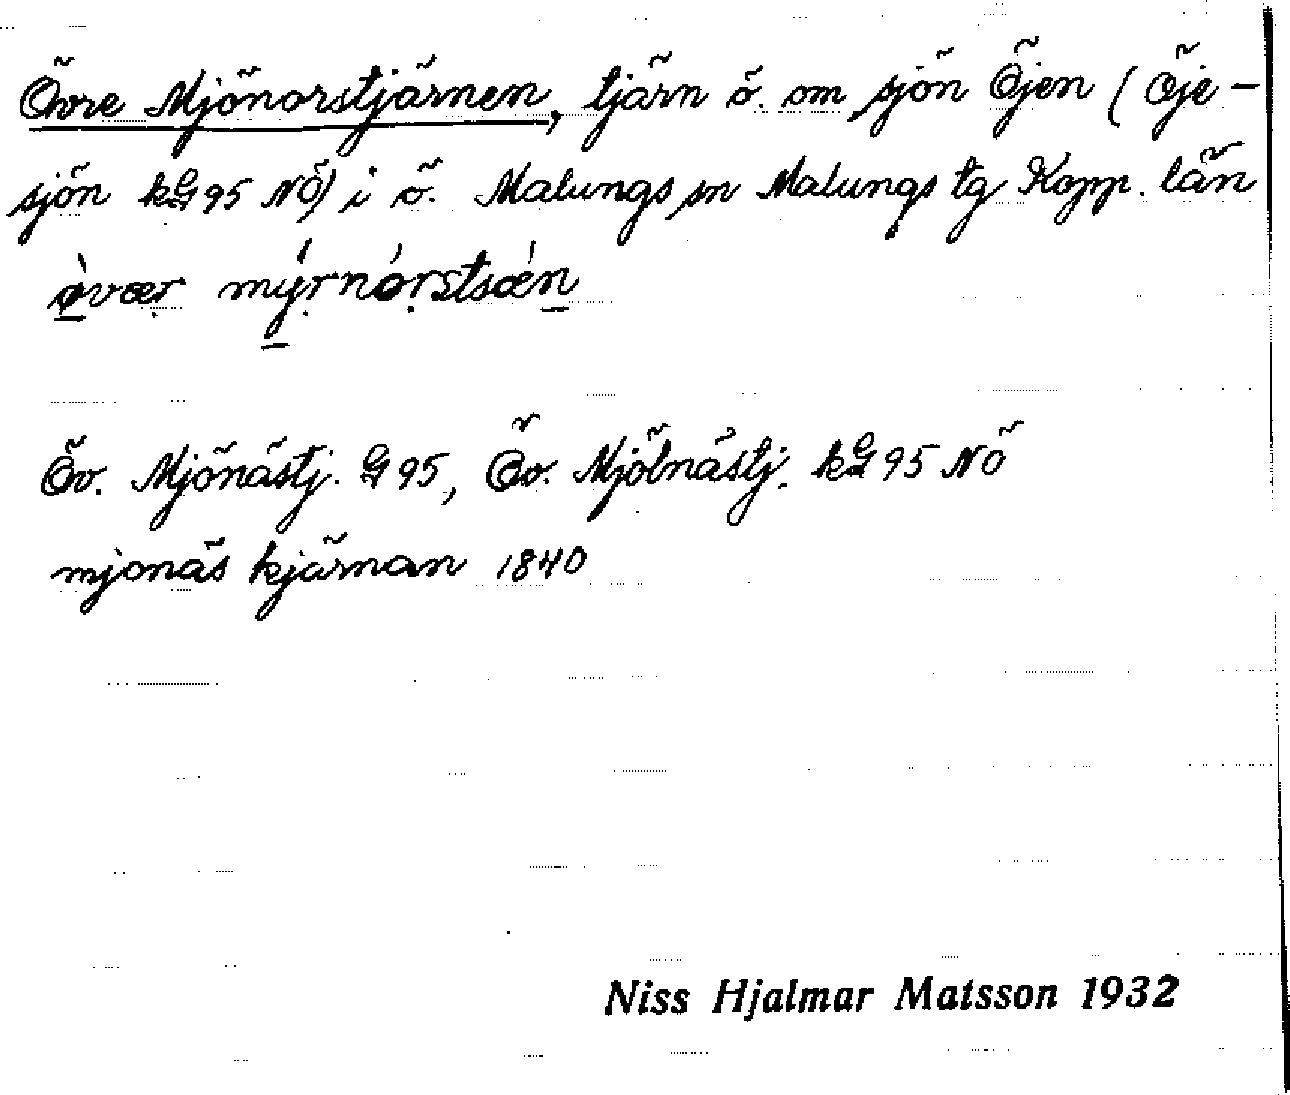 Övre Mjönorstjärnen, tjärn ö. om sjön Öjen (Öje-
sjön kG95 NÖ) i ö. Malungs sn Malungs tg Kopp. län
øvær myrnorstsæn
Öv. Mjönästj. G95, Öv. Mjölnästj. kG95 NÖ
mjonäs kjärnan 1840
Niss Hjalmar Matsson 1932